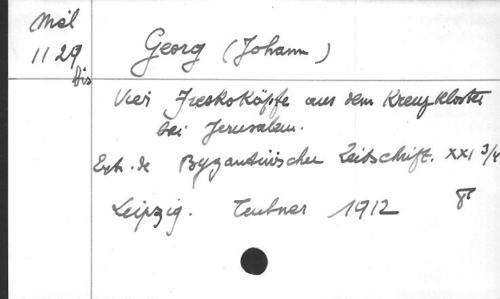 Mél
1129
bis
Georg (Johann)
Vier Freskoköpfe aus dem Kreuzkloster
bei Jerusalem.
Ext. de Byzantinischer Zeitschrift. XXI 3/4
Leipzig. Teubner 1912 8°